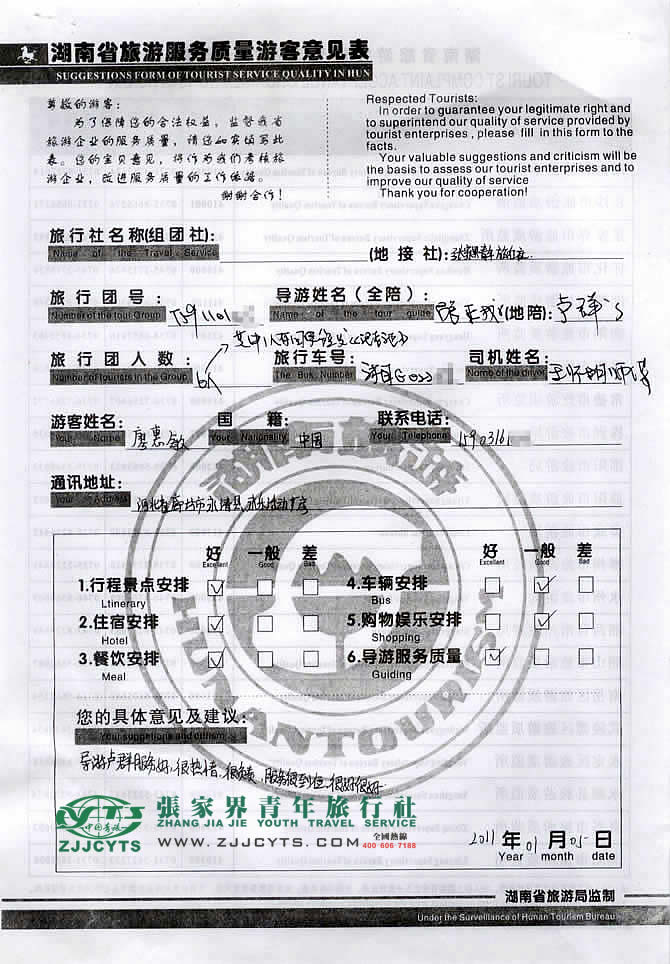 湖南省旅游服务质量游客意见表
SUGGESTIONS FORM OF TOURIST SERVICE QUALITY IN HUN
尊敬的游客:
为了保障您的合法权益，监督我省
旅游企业的服务质量，请您如实填写此
表。您的宝贵意见，将作为我们考核旅
游企业，改进服务质量的工作依据。
谢谢合作!
Respected Tourists:
In order to guarantee your legitimate right and
to superintend our quality of service provided by
tourist enterprises , please fill in this form to the
facts.
Your valuable suggestions and criticism will be
the basis to assess our tourist enterprises and to
improve our quality of service
Thank you for cooperation!
旅行社名称(组团社):
Name of the Travel Service
(地接社):
旅行团号:
Number of the tour Group
导游姓名(全陪):
Name of the tour guide
(地陪):
旅行团人数:
Number of tourists in the Group
6人
旅行车号:
The Bus Number
司机姓名:
Name of the driver
游客姓名:
Your Name
廖惠敏
国籍:
Your Nationality
中国
联系电话:
Your Telephone
1590316
通讯地址:
Your Address
河北省廊坊市永清县
湖南旅游
HUNAN TOURISM
好 一般 差
Excellent Good Bad
好 一般 差
Excellent Good Bad
1.行程景点安排
Ltinerary
4.车辆安排
Bus
2.住宿安排
Hotel
5.购物娱乐安排
Shopping
3.餐饮安排
Meal
6.导游服务质量
Guiding
您的具体意见及建议:
导游卢群服务好,很热情,服务很到位,很好很好
中国青旅
ZJJCYTS
張家界青年旅行社
ZHANG JIA JIE YOUTH TRAVEL SERVICE
WWW.ZJJCYTS.COM
全國熱線
400 606 7188
2011 年 01 月 05 日
Year month date
湖南省旅游局监制
Under the Surveillance of Hunan Tourism Bureau